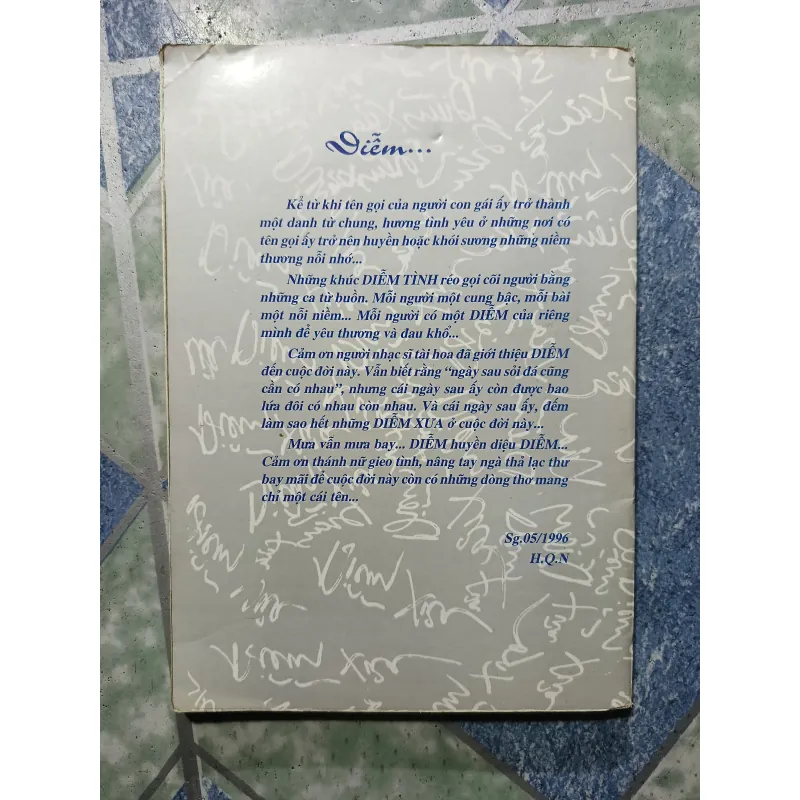 Diễm...
Kể từ khi tên gọi của người con gái ấy trở thành
một danh từ chung, hương tình yêu ở những nơi có
tên gọi ấy trở nên huyền hoặc khói sương những niềm
thương nỗi nhớ...
Những khúc DIỄM TÌNH réo gọi cõi người bằng
những ca từ buồn. Mỗi người một cung bậc, mỗi bài
một nỗi niềm... Mỗi người có một DIỄM của riêng
mình để yêu thương và đau khổ...
Cảm ơn người nhạc sĩ tài hoa đã giới thiệu DIỄM
đến cuộc đời này. Vẫn biết rằng “ngày sau sỏi đá cũng
cần có nhau”, nhưng cái ngày sau ấy còn được bao
lứa đôi có nhau còn nhau. Và cái ngày sau ấy, đếm
làm sao hết những DIỄM XƯA ở cuộc đời này...
Mưa vẫn mưa bay... DIỄM huyền diệu DIỄM...
Cảm ơn thánh nữ gieo tình, nâng tay ngà thả lạc thư
bay mãi để cuộc đời này còn có những dòng thơ mang
chỉ một cái tên...
Sg.05/1996
H.Q.N